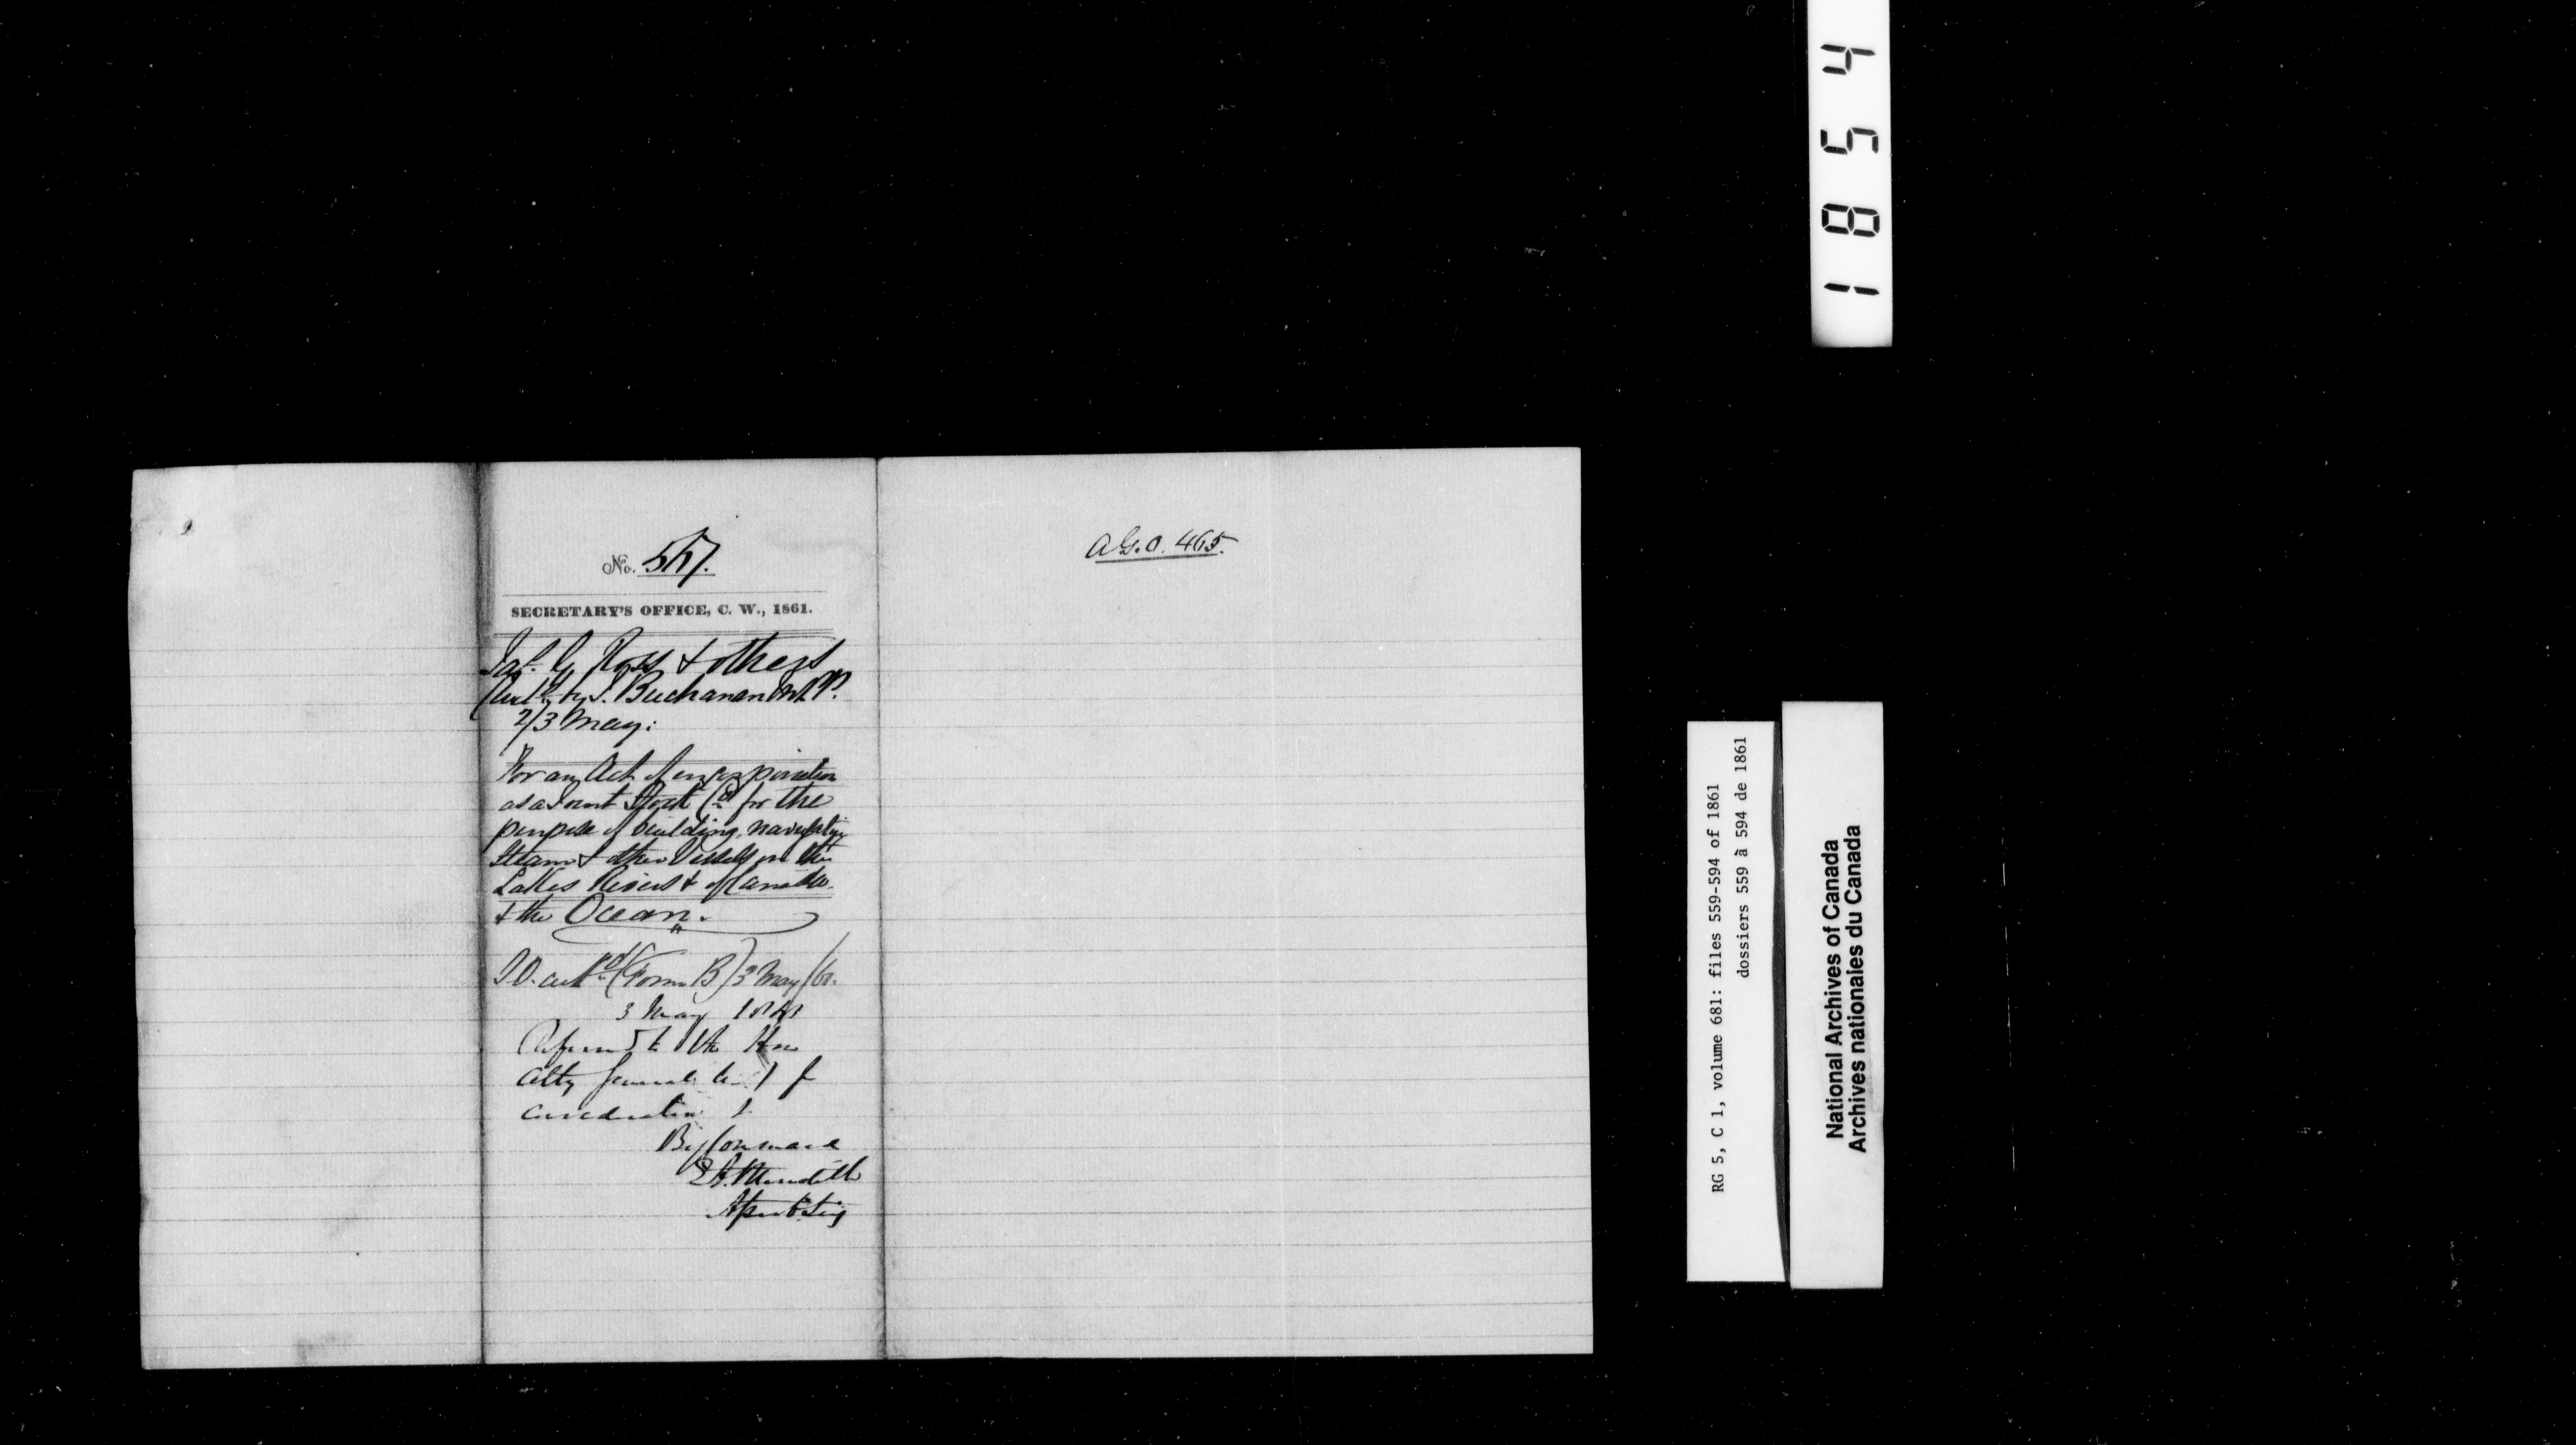 No. 567.
SECRETARY'S OFFICE, C. W., 1861.
Jas. G. Ross & others
by I. Buchanan M.P.P.
2/3 May:
For an Act of incorporation
as a Joint Stock Co for the
purpose of building, navigating
Steam & other Vessels on the
Lakes Rivers & of Canada
& the Ocean.
(Form B) 3 May/61.
3 May 1861
Referred to the Hon
Atty General for
consideration
By Command
E A. Meredith
A.G.O. 465.
1854
RG 5, C 1, volume 681: files 559-594 of 1861
dossiers 559 à 594 de 1861
National Archives of Canada
Archives nationales du Canada